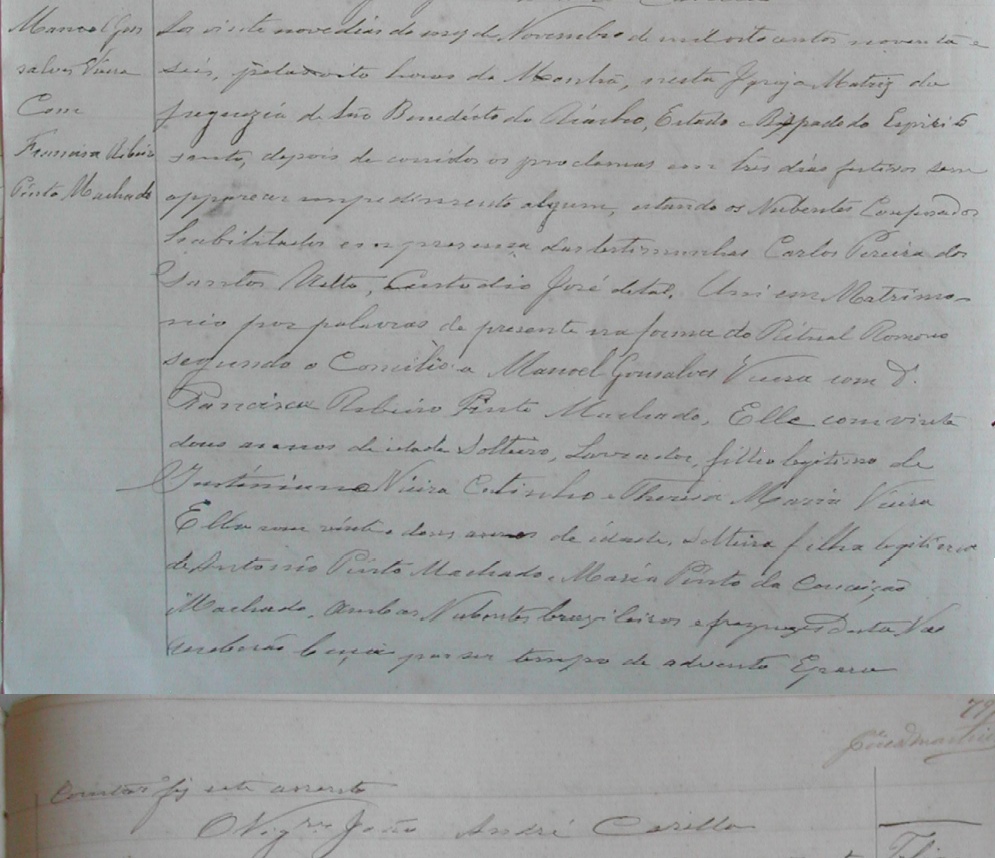 Manoel Gon
salves Vieira
Com
Francisca Ribeiro
Pinto Machado
Aos vinte nove dias do mez de Novembro de mil oito centos noventa e
seis, pelas oito horas da Manhã, nesta Igreja Matriz da
freguezia de São Benedicto do Riacho, Estado e Bispado do Espirito
santo, depois de corridos os proclamas em tres dias festivos sem
apparecer impedimento algum, estando os Nubentes Comparados
habilitados e em presença das testimunhas Carlos Pereira dos
Santos Netto, Custodio José de tal. Uni em Matrimo-
nio por palavras de presente na forma do Ritual Romano
segundo o Concilio a Manoel Gonsalves Vieira com D.
Francisca Ribeiro Pinto Machado, Elle com vinte
dous annos de idade Solteiro, Lavrador, filho legitimo de
Justiniano Vieira Cutinho e Thereza Maria Vieira
Ella com vinte e dous annos de idade, solteira filha legitima
de Antonio Pinto Machado e Maria Pinto da Conceição
Machado, ambos Nubentes brazileiros e freguezes desta Não
receberão bença por ser tempo de advento E para
79
constar fiz este assento
O Vigrº João André Casella